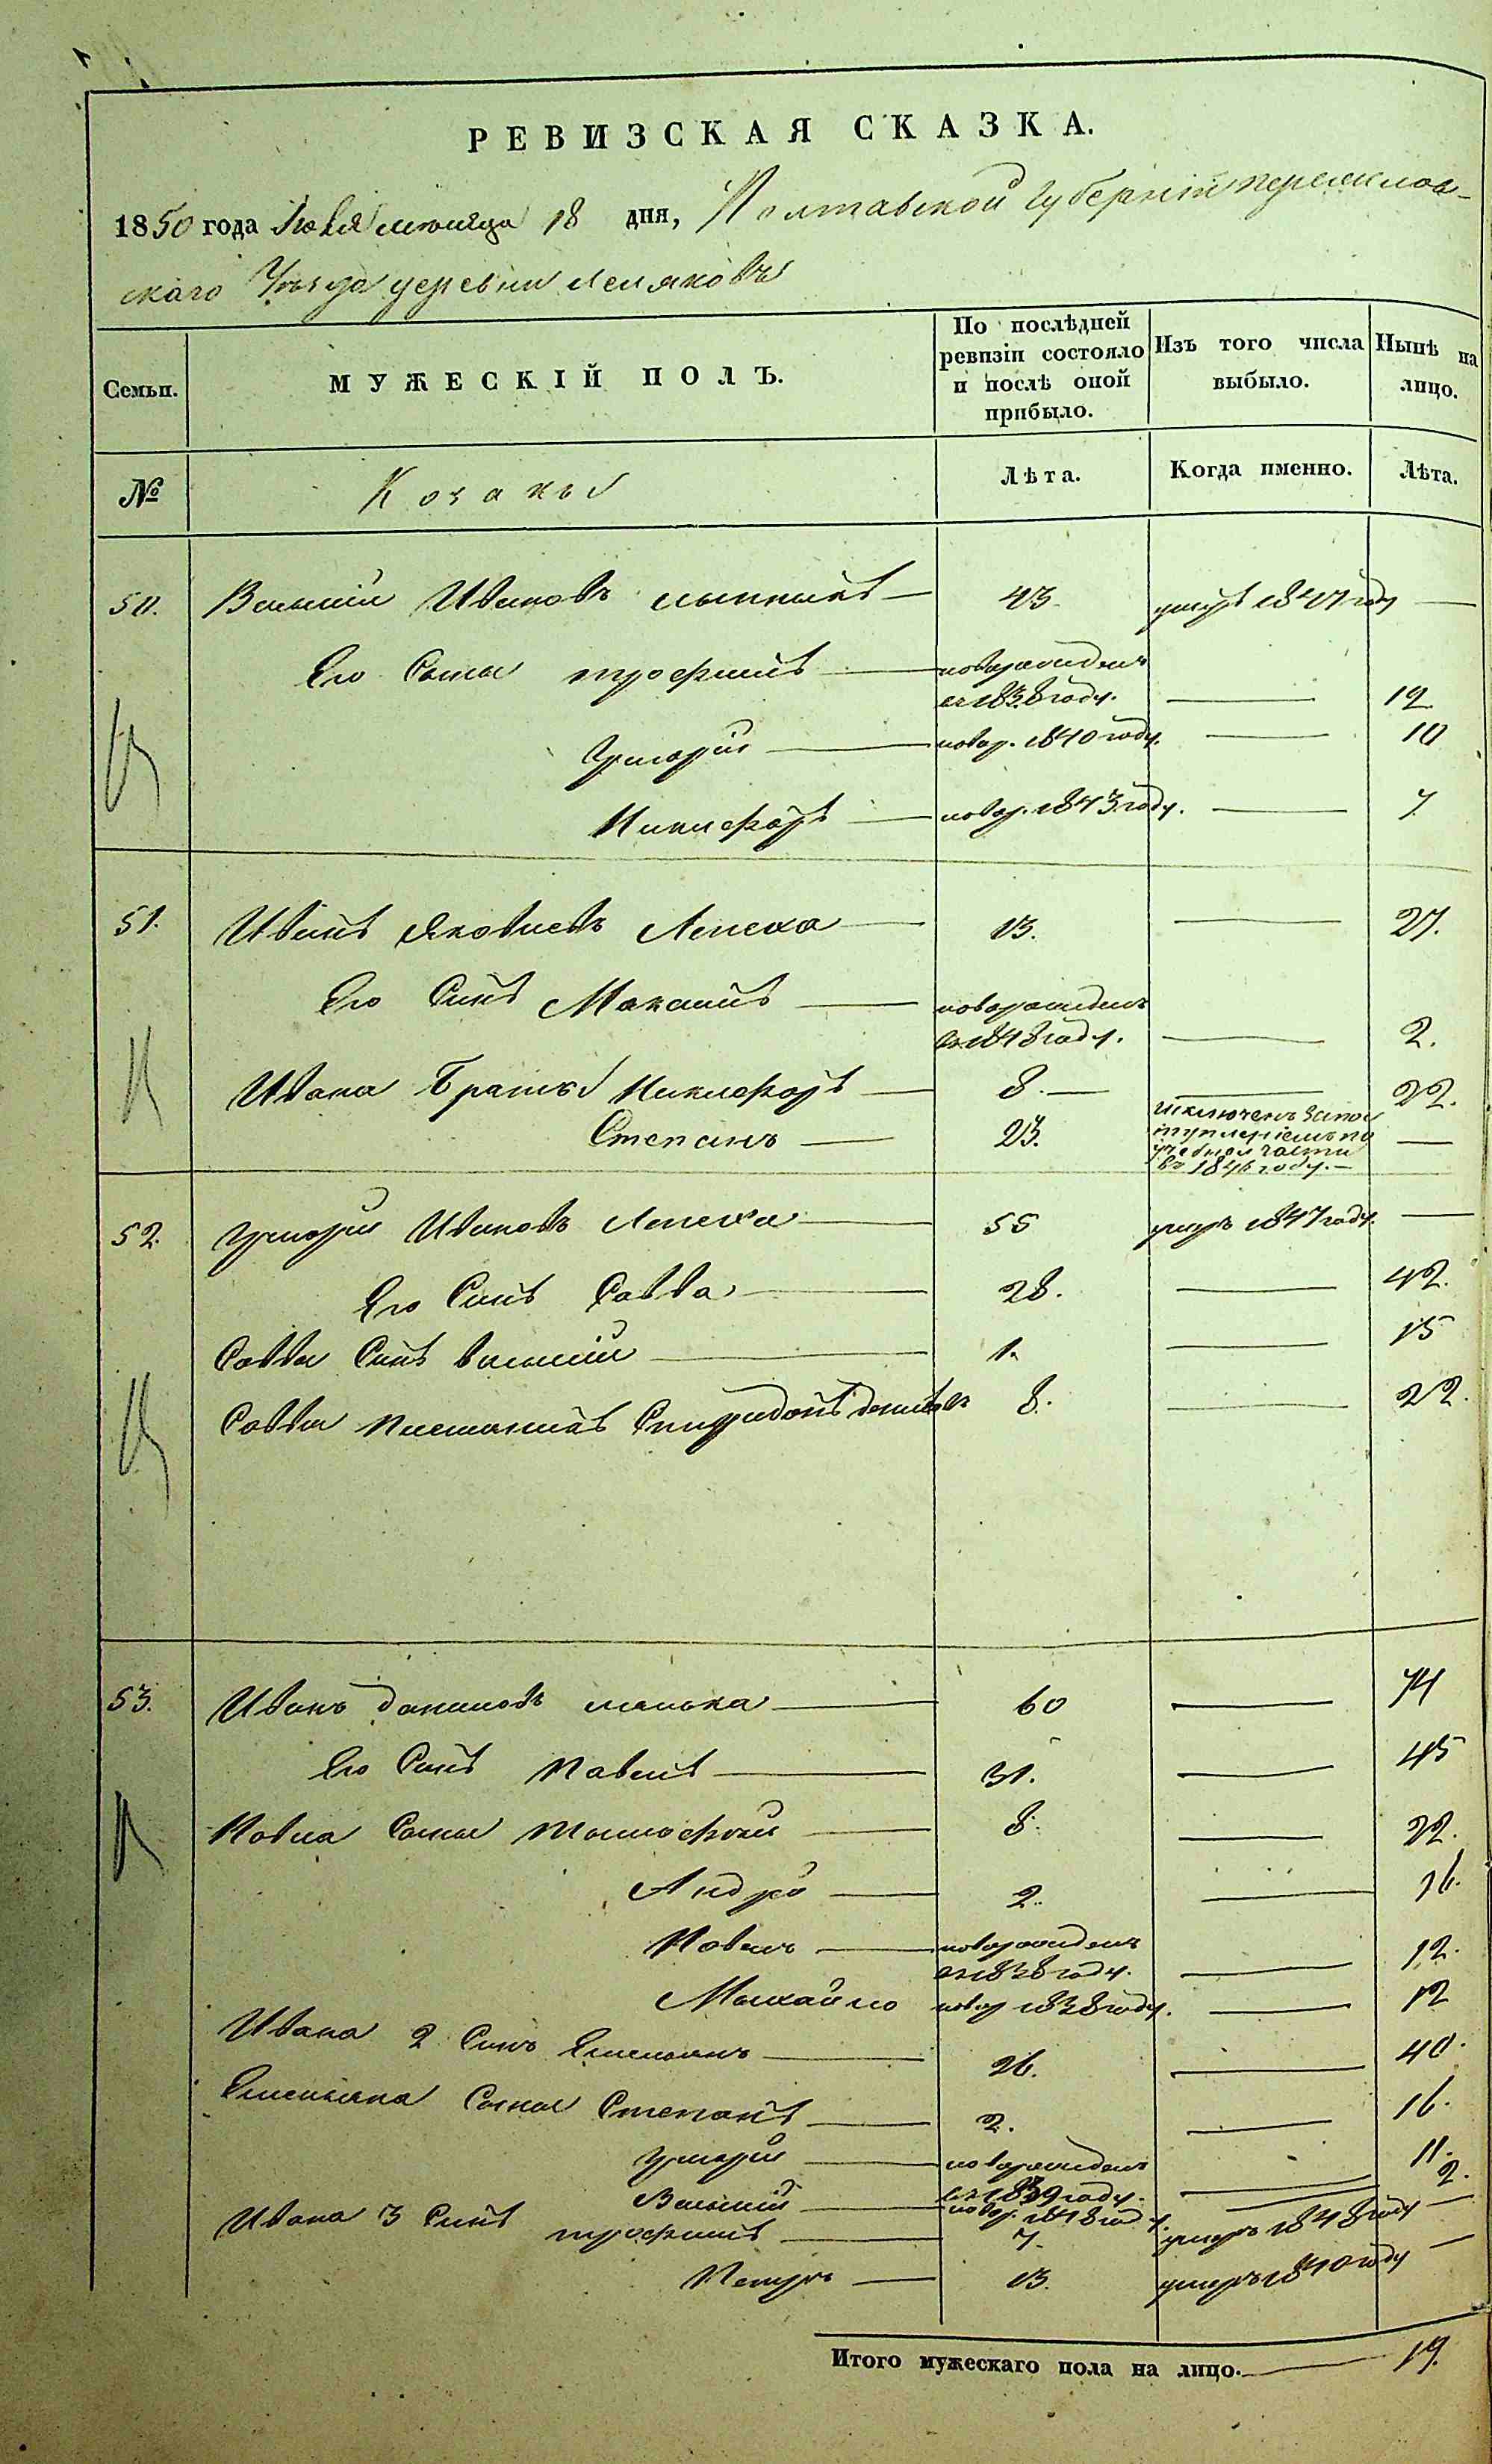 РЕВИЗСКАЯ СКАЗКА.
1850 года Іюля мѣсяца 18 дня, Полтавской Губерніи
скаго Уѣзда деревни Леляковъ
Семьи.
МУЖЕСКІЙ ПОЛЪ.
По послѣдней ревизіи состояло и послѣ оной прибыло.
Изъ того числа выбыло.
Нынѣ на лицо.
№ Козаки Лѣта. Когда именно. Лѣта.
50. Василій Ивановъ 43. умеръ 1847 году
Его Сыны трофимъ новорожденъ
въ 1838 году. 12
Григорій новор. 1840 году. 10
Никифоръ новор. 1843 году. 7
51. Иванъ Яковлевъ Лепеха 13. 27.
Его Синъ Максимъ новорожденъ
въ 1848 году. 2.
Ивана Браты Никифоръ 8. 22.
Степанъ 23. исключенъ запос
тупленіемъ по
учебной части
въ 1846 году.
52. Григорій Ивановъ Лепеха 55 умеръ 1847 году.
Его Синъ Савва 28. 42.
Саввы Синъ василій 1. 15
Саввы Племянникъ Спиридонъ 8. 22.
53. Иванъ даниловъ 60 74
Его Синъ Павелъ 31. 45
Павла Сыны Тимофей 8. 22.
Андрей 2. 16.
Павелъ новорожденъ
въ 1838 году. 12.
Михайло новор 1838 году. 12
Ивана 2 Синъ Емельянъ 26. 40.
Емельяна Сыны Степанъ 2. 16.
Григорій новорожденъ
въ 1839 году. 11.
Василій новор. 1848 год 2.
Ивана 3 Синъ трофимъ 7. умеръ 1848 году
Петръ 13. умеръ 1840 году
Итого мужескаго пола на лицо. 19.